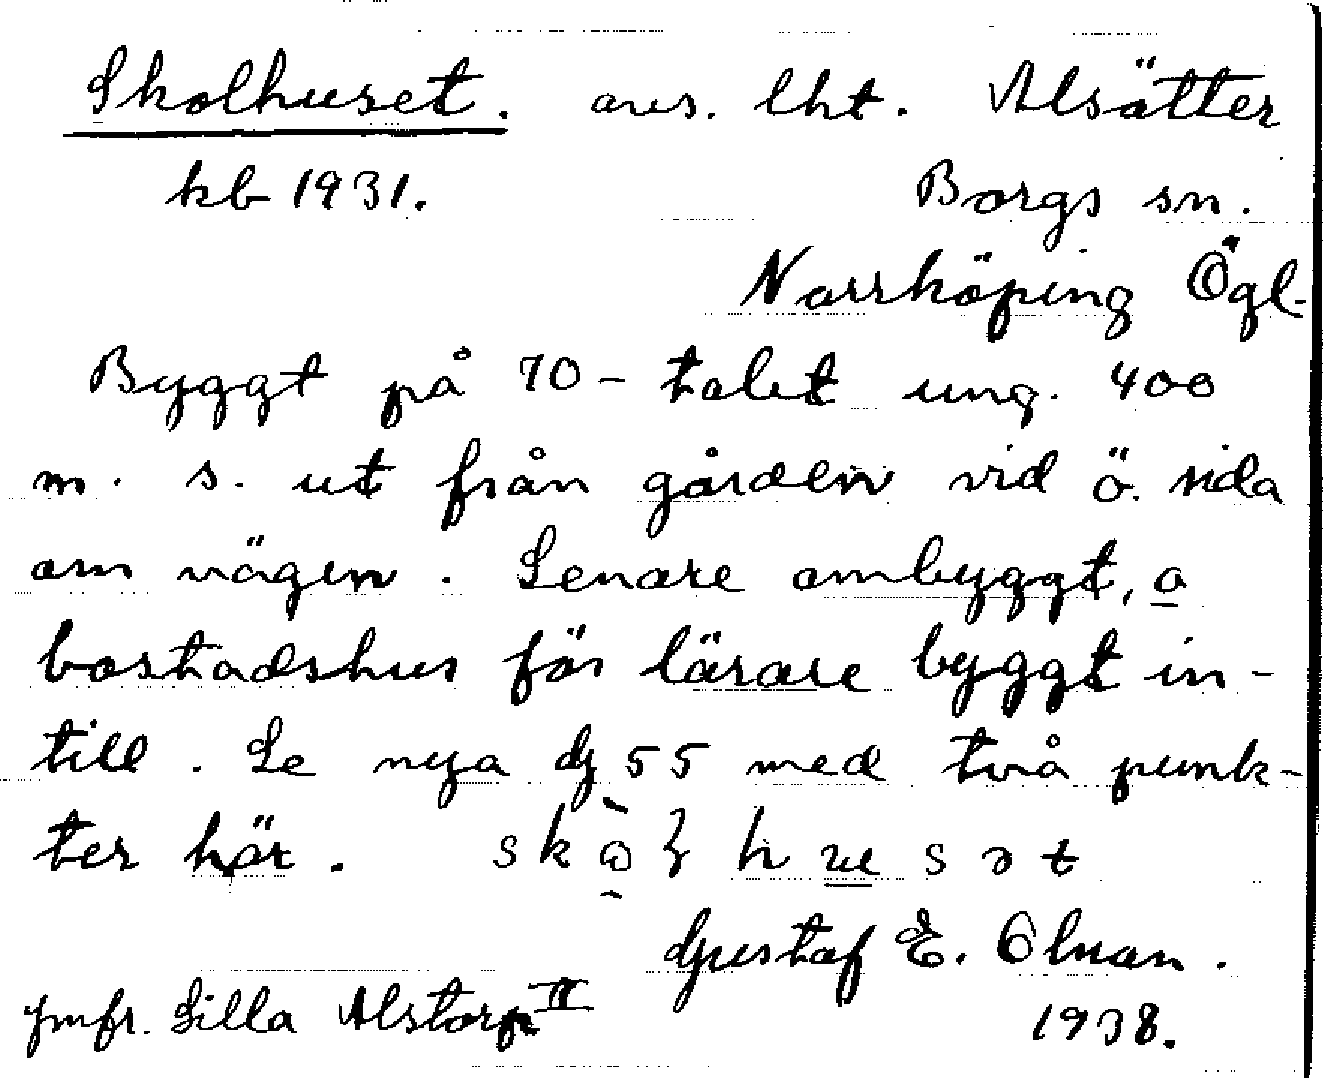 Skolhuset. avs. lht. Alsätter
kb 1931. Borgs sn.
Norrköping Ögl.
Byggt på 70-talet ung. 400
m. s. ut från gården vid ö. sida
om vägen. Senare ombyggt, o
bostadshus för lärare byggt in-
till. Se nya Gf 55 med två punk-
ter här.
Gustaf E. Olson.
jmfr. Lilla Alstorp II 1938.